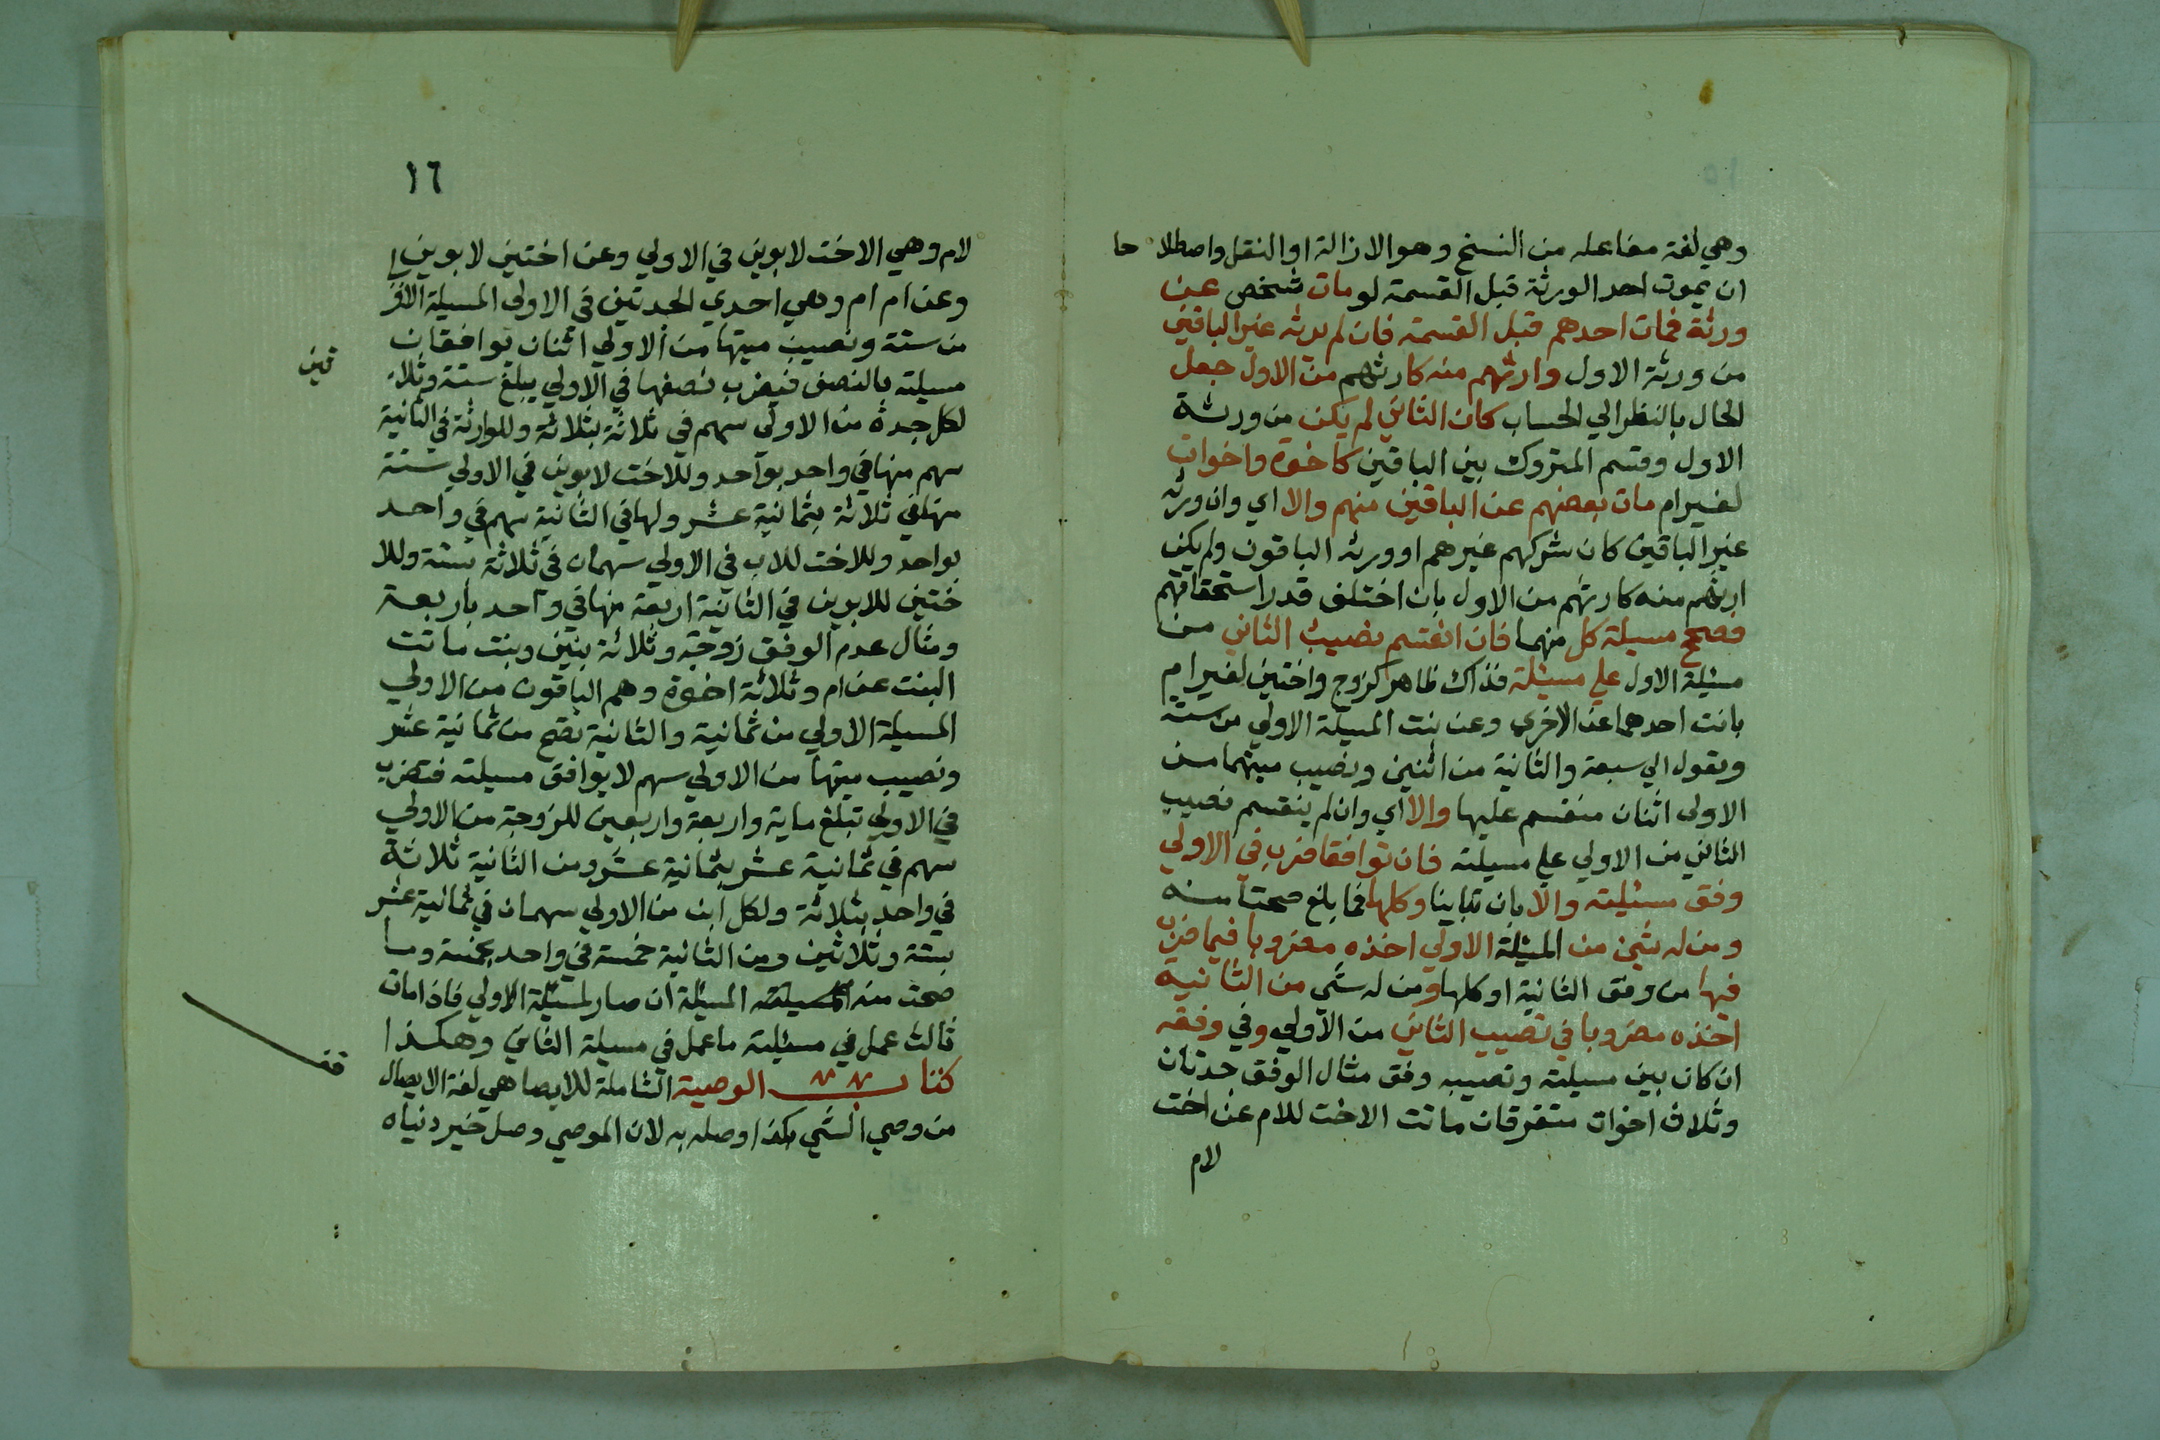 وهي لغة مفاعله من النسخ وهو الازالة او النقل واصطلا حا
ان يموت احد الورثة قبل القسمة لو مات شخص عن
ورثة فمات احدهم قبل القسمة فان لم يرثه غير الباقين
من ورثة الاول وارثهم منه كارثهم من الاول جعل
الحال بالنظر الي الحساب كان الثاني لم يكن من ورثة
الاول وقسم المتروك بين الباقين كاخوة واخوات
لغير ام مات بعضهم عن الباقين منهم والا اي وان ورثه
غير الباقين كان شركهم غيرهم او ورثه الباقون ولم يكن
ارثهم منه كارثهم من الاول بان اختلف قدر استحقاقهم
فصحح مسيلة كل منهما فان انقسم نصيب الثاني من
مسيلة الاول علي مسيلته فذاك ظاهر كزوج واختين لغير ام
بانت احدهما عن الاخري وعن بنت المسيلة الاولي من ستة
وتعول الي سبعة والثانية من اثنين ونصيب ميتهما من
الاولى اثنان منقسم عليها والا اي وان لم ينقسم نصيب
الثاني من الاولي علي مسيلته فان توافقا ضرب في الاولي
وفق مسيلته والا بان تباينا وكلها فما بلغ صحتا منه
ومن له شي من المسيلة الاولي اخذه مضروبا فيما ضرب
فيها من وفق الثانية او كلها ومن له شي من الثانيه
اخذه مضروبا في نصيب الثاني من الاولي وفي وفقه
ان كان بين مسيلته ونصيبه وفق مثال الوفق جدتان
وثلاث اخوات متفرقات ماتت الاخت للام عن اخت
لام
١٦
لام وهي الاخت لابوين في الاولي وعن اختين لابوين
وعن ام ام وهي احدي الجدتين في الاولى المسيلة الاولي
من ستة ونصيب ميتها من الاولي اثنان توافقان
مسيلته بالنصف فيضرب نصفها في الاولي يبلغ ستة وثلا
ثين
لكل جدة من الاولى سهم في ثلاثة بثلاثة وللوارثة في الثانية
سهم منها في واحد بواحد وللاخت لابوين في الاولي ستة
منها في ثلاثة بثمانية عشر ولها في الثانية سهم في واحد
بواحد وللاخت للاب في الاولي سهمان في ثلاثة بستة وللا
ختين للابوين في الثانية اربعة منها في واحد باربعة
ومثال عدم الوفق زوجة وثلاثة بنين وبنت ماتت
البنت عن ام وثلاثة اخوة وهم الباقون من الاولي
المسيلة الاولي من ثمانية والثانية تصح من ثمانية عشر
ونصيب ميتها من الاولي سهم لا يوافق مسيلته فتضرب
في الاولي تبلغ ماية واربعة واربعين للزوجة من الاولي
سهم في ثمانية عشر بثمانية عشر ومن الثانية ثلاثة
في واحد بثلاثة ولكل ابن من الاولي سهمان في ثمانية عشر
بستة وثلاثين ومن الثانية خمسة في واحد بخمسة وما
صحت منه المسيلة ان صار لمسيلة الاولي فاذا مات
ثالث عمل في مسيلته ما عمل في مسيلة الثاني وهكذا
قف
كتاب الوصية الشاملة للايصا هي لغة الايصال
من وصي الشي بكذا وصله به لان الموصي وصل خير دنياه